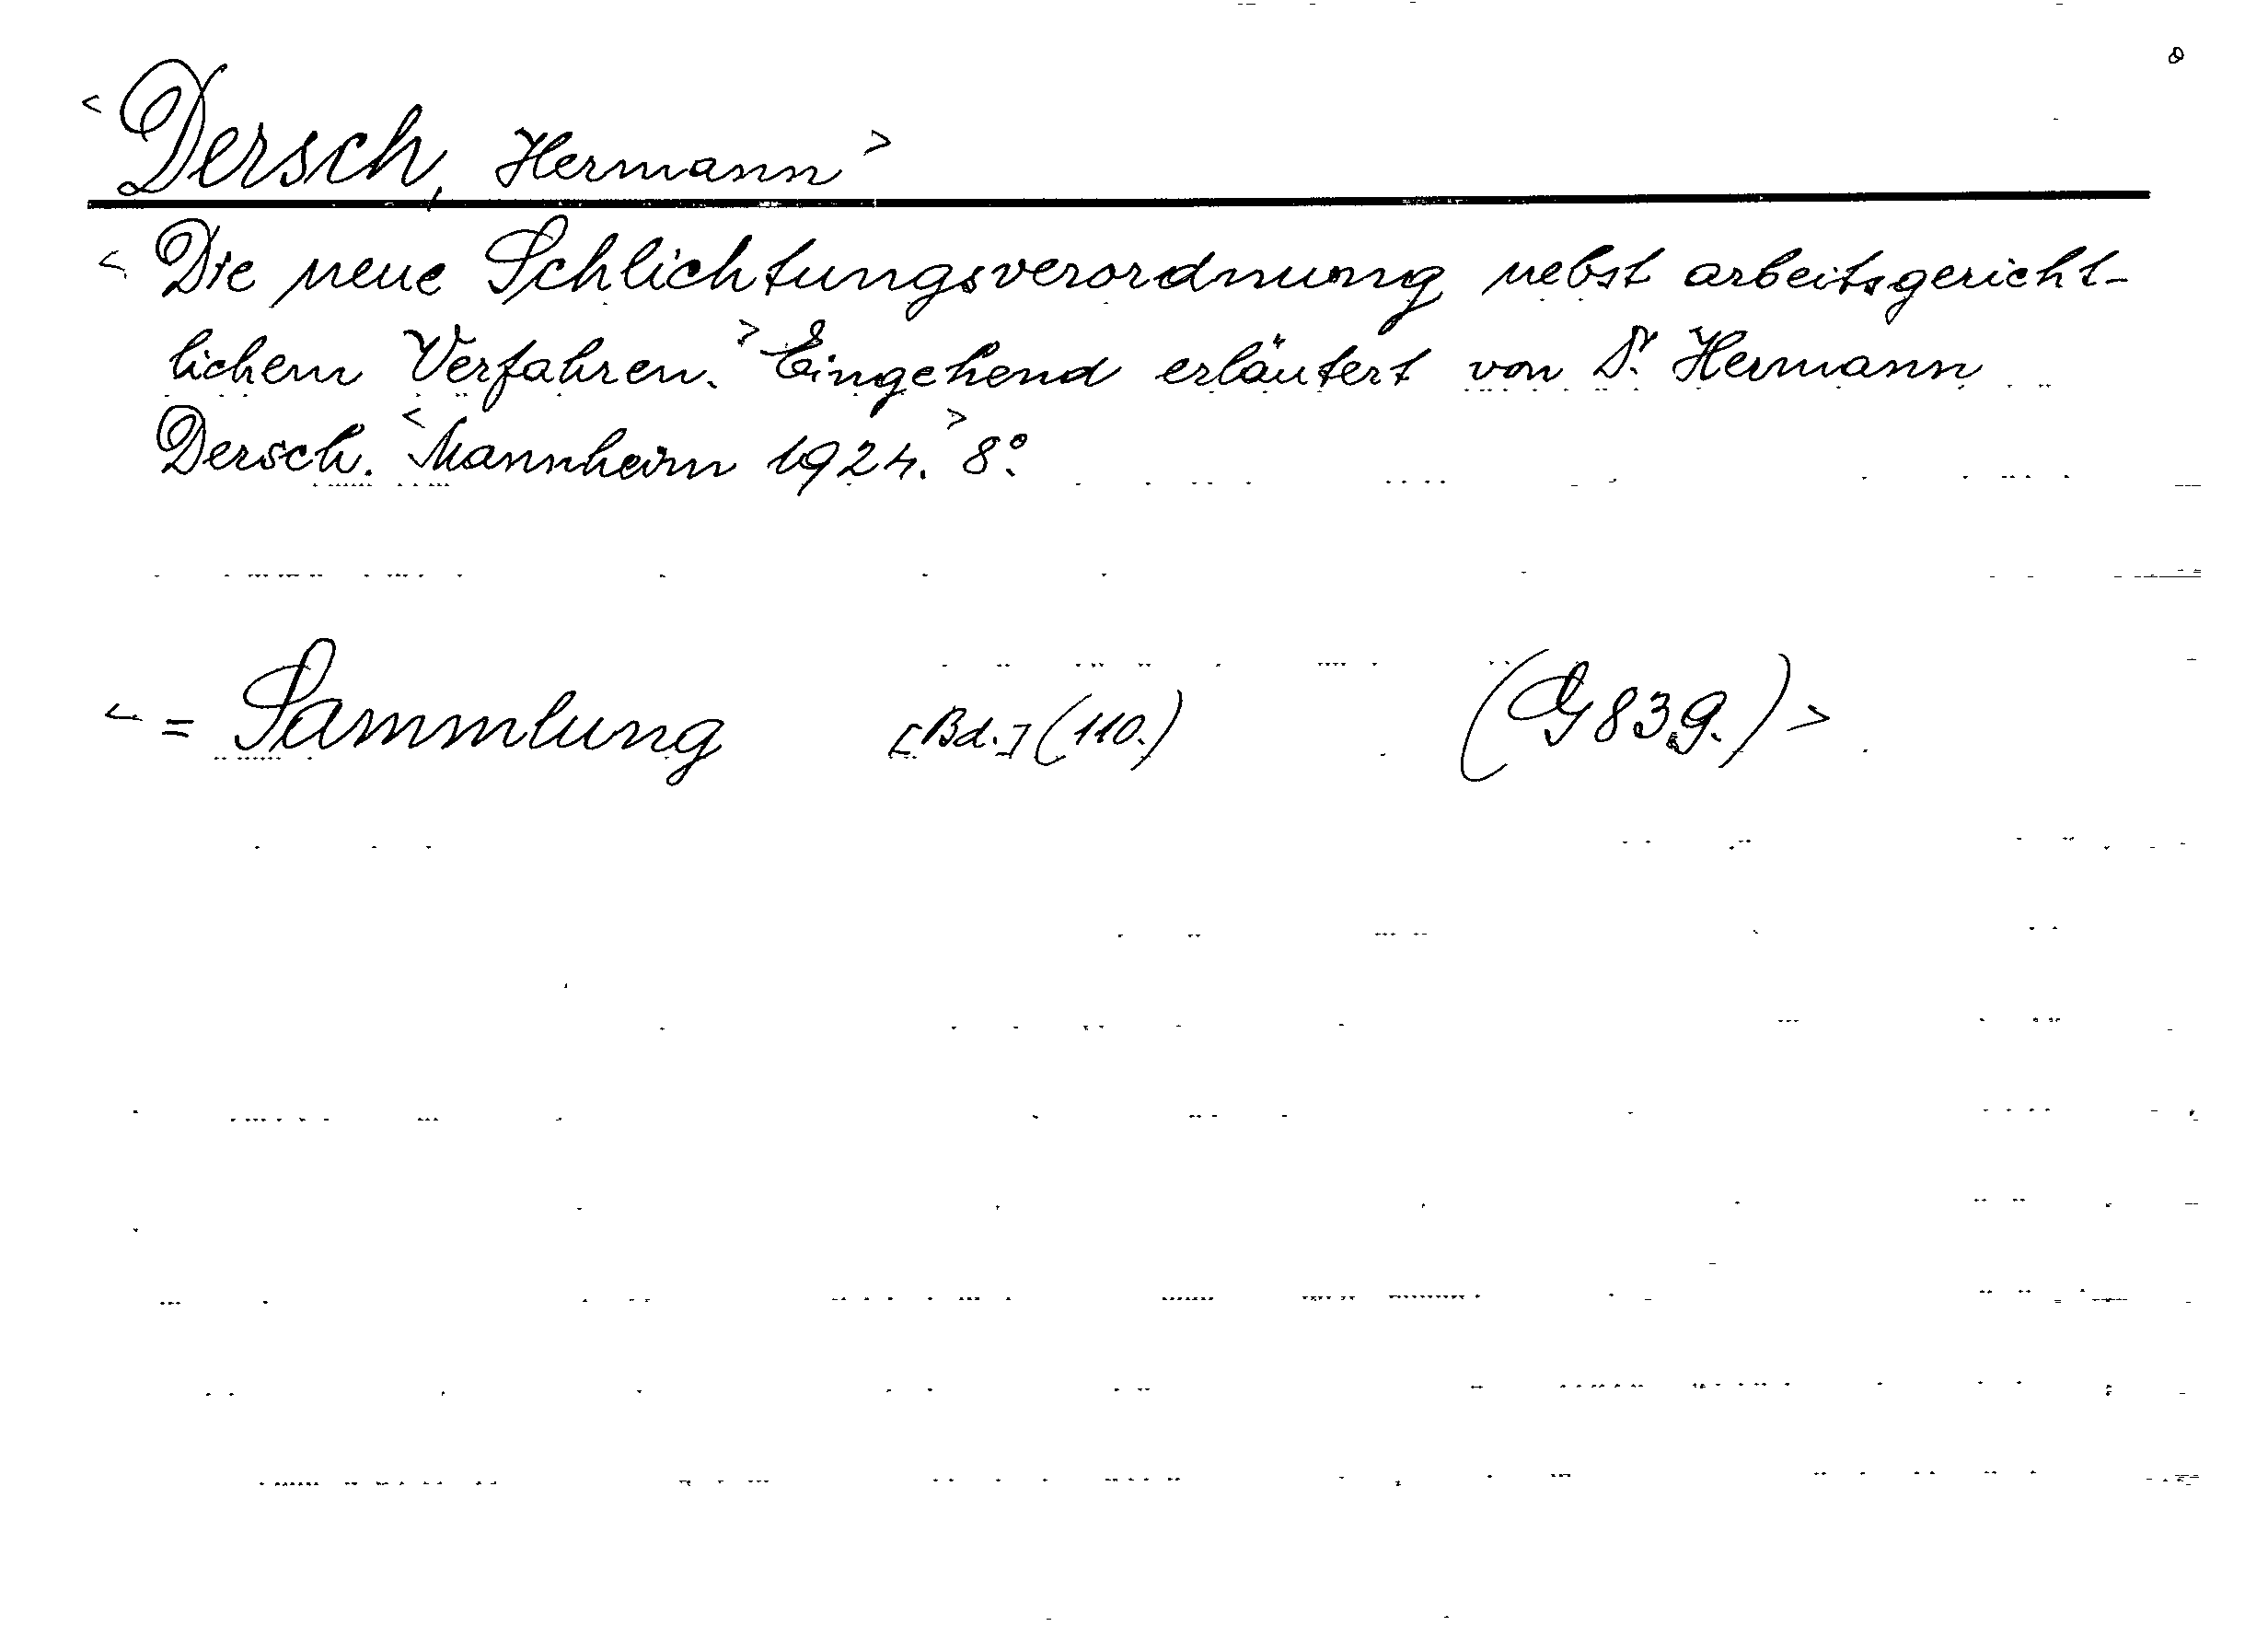 < Dersch, Hermann >
< Die neue Schlichtungsverordnung nebst arbeitsgericht-
lichem Verfahren. > Eingehend erläutert von Dr. Hermann
Dersch. < Mannheim 1924. > 8°.
< = Sammlung [Bd.] (110.) (G 83 g.) >